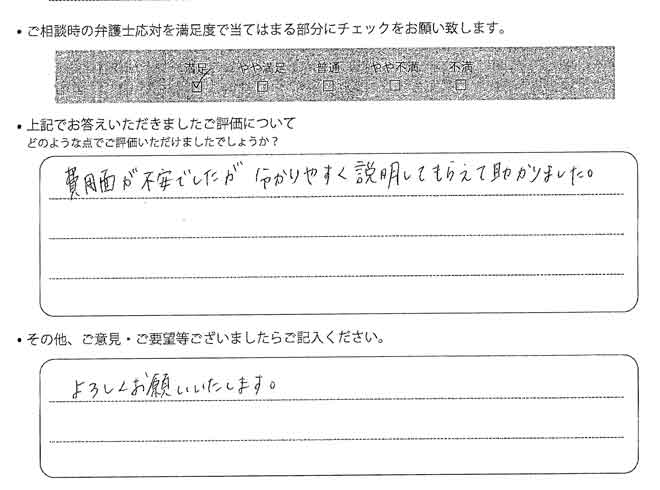 ・ご相談時の弁護士応対を満足度で当てはまる部分にチェックをお願い致します。
満足 やや満足 普通 やや不満 不満
☑ □ □ □ □
・上記でお答えいただきましたご評価について
どのような点でご評価いただけましたでしょうか？
費用面が不安でしたが 分かりやすく説明してもらえて助かりました。
・その他、ご意見・ご要望等ございましたらご記入ください。
よろしくお願いいたします。